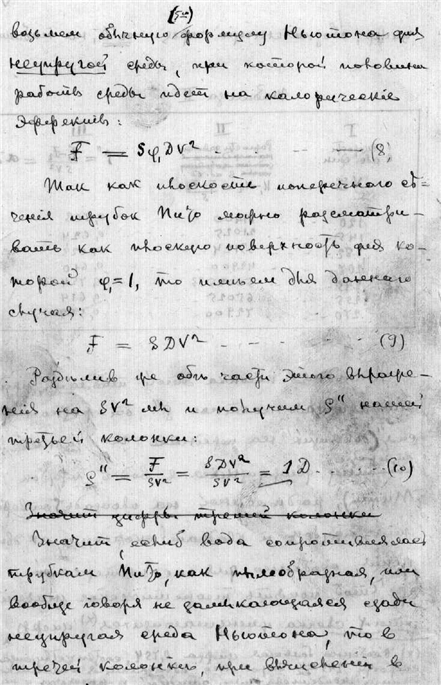 возьмем обычную формулу Ньютона для
неупругой среды, при которой половина
работы среды идет на калорическіе
эффекты:
F = Sφ₁DV² - - - (8)
Так как плоскость поперечнаго сѣ-
ченія трубок Пито можно разсматри-
вать как плоскую поверхность для ко-
торой φ₁=1, то имѣем для даннаго
случая:
F = SDV² - - - - - (9)
Раздѣлив же обѣ части этого выраже-
нія на SV² мы и получим ρ" нашей
третьей колонки:
ρ" = F/SV² = SDV²/SV² = 1D . . . . . (10)
Значит цифры третей колонки
Значит, если б вода сопротивлялась
трубкам Пито, как пылеобразная, или
вообще говоря не замыкающаяся сзади
неупругая среда Ньютона, то в
третей колонкѣ, при вычислении в